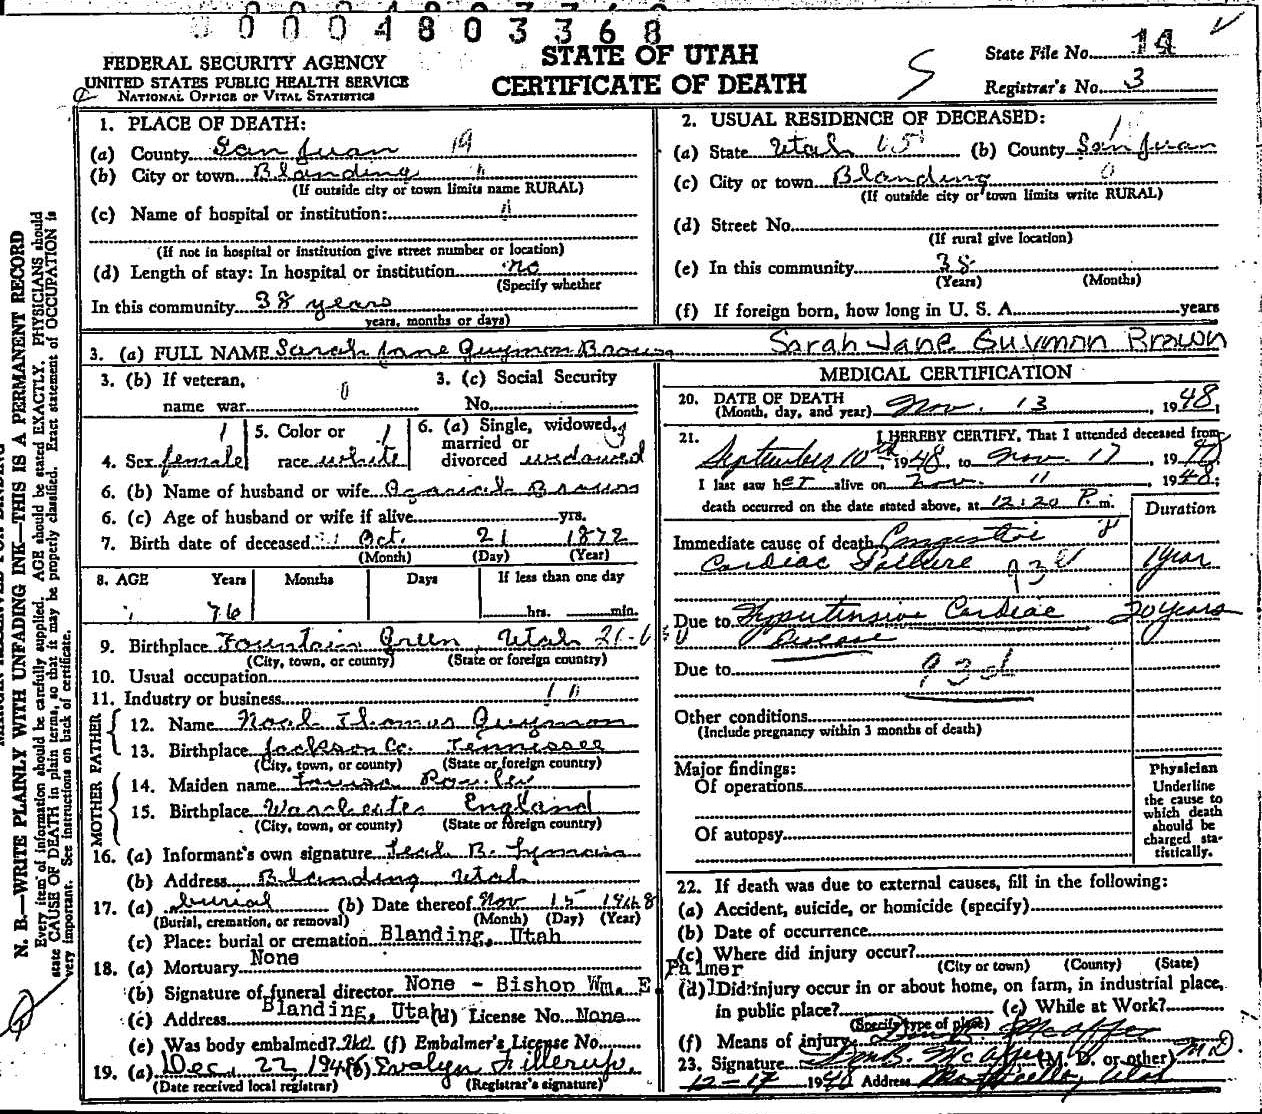 0 0 0 4 8 0 3 3 6 8
STATE OF UTAH
CERTIFICATE OF DEATH
FEDERAL SECURITY AGENCY
UNITED STATES PUBLIC HEALTH SERVICE
NATIONAL OFFICE OF VITAL STATISTICS
State File No. 14
Registrar's No. 3
N. B.—WRITE PLAINLY WITH UNFADING INK—THIS IS A PERMANENT RECORD
Every item of information should be carefully supplied. AGE should be stated EXACTLY. PHYSICIANS should
state CAUSE OF DEATH in plain terms, so that it may be properly classified. Exact statement of OCCUPATION is
very important. See instructions on back of certificate.
1. PLACE OF DEATH:
(a) County San Juan 19
(b) City or town Blanding
(If outside city or town limits name RURAL)
(c) Name of hospital or institution:
(If not in hospital or institution give street number or location)
(d) Length of stay: In hospital or institution no
(Specify whether
In this community 38 years
years, months or days)
2. USUAL RESIDENCE OF DECEASED:
(a) State Utah 65 (b) County San Juan
(c) City or town Blanding 0
(If outside city or town limits write RURAL)
(d) Street No.
(If rural give location)
(e) In this community 38
(Years) (Months)
(f) If foreign born, how long in U. S. A. years
3. (a) FULL NAME Sarah Jane Guymon Brown Sarah Jane Guymon Brown
3. (b) If veteran, name war 0
3. (c) Social Security No.
4. Sex female 5. Color or race white 6. (a) Single, widowed, married or divorced widowed
6. (b) Name of husband or wife Brown
6. (c) Age of husband or wife if alive yrs.
7. Birth date of deceased Oct. 21 1872
(Month) (Day) (Year)
8. AGE Years Months Days If less than one day
76 hrs. min.
9. Birthplace Fountain Green, Utah
(City, town, or county) (State or foreign country)
10. Usual occupation
11. Industry or business
FATHER
12. Name Noah Thomas Guymon
13. Birthplace Jackson Co. Tennessee
(City, town, or county) (State or foreign country)
MOTHER
14. Maiden name Louisa Rowley
15. Birthplace England
(City, town, or county) (State or foreign country)
16. (a) Informant's own signature B. Lyman
(b) Address Blanding Utah
17. (a) burial (b) Date thereof Nov 15 1948
(Burial, cremation, or removal) (Month) (Day) (Year)
(c) Place: burial or cremation Blanding, Utah
18. (a) Mortuary None
(b) Signature of funeral director None - Bishop Wm. E. Palmer
(c) Address Blanding, Utah (d) License No. None
(e) Was body embalmed? (f) Embalmer's License No.
19. (a) Dec. 22, 1948 (b) Evelyn Fillerup
(Date received local registrar) (Registrar's signature)
MEDICAL CERTIFICATION
20. DATE OF DEATH
(Month, day, and year) Nov. 13, 1948;
21. I HEREBY CERTIFY, That I attended deceased from
September 10th, 1948, to Nov. 17, 19
I last saw her alive on Nov. 11, 1948;
death occurred on the date stated above, at 12:20 P. m.
Duration
Immediate cause of death Congestive
Cardiac Failure 93d 1 year
Due to Hypertensive Cardiac 20 years
Disease
Due to 93d
Other conditions
(Include pregnancy within 3 months of death)
Major findings:
Of operations
Of autopsy
Physician
Underline
the cause to
which death
should be
charged sta-
tistically.
22. If death was due to external causes, fill in the following:
(a) Accident, suicide, or homicide (specify)
(b) Date of occurrence
(c) Where did injury occur?
(City or town) (County) (State)
(d) Did injury occur in or about home, on farm, in industrial place,
in public place? (e) While at Work?
(Specify type of place)
(f) Means of injury
23. Signature (M. D. or other) M D.
12-17 19 Address Monticello, Utah